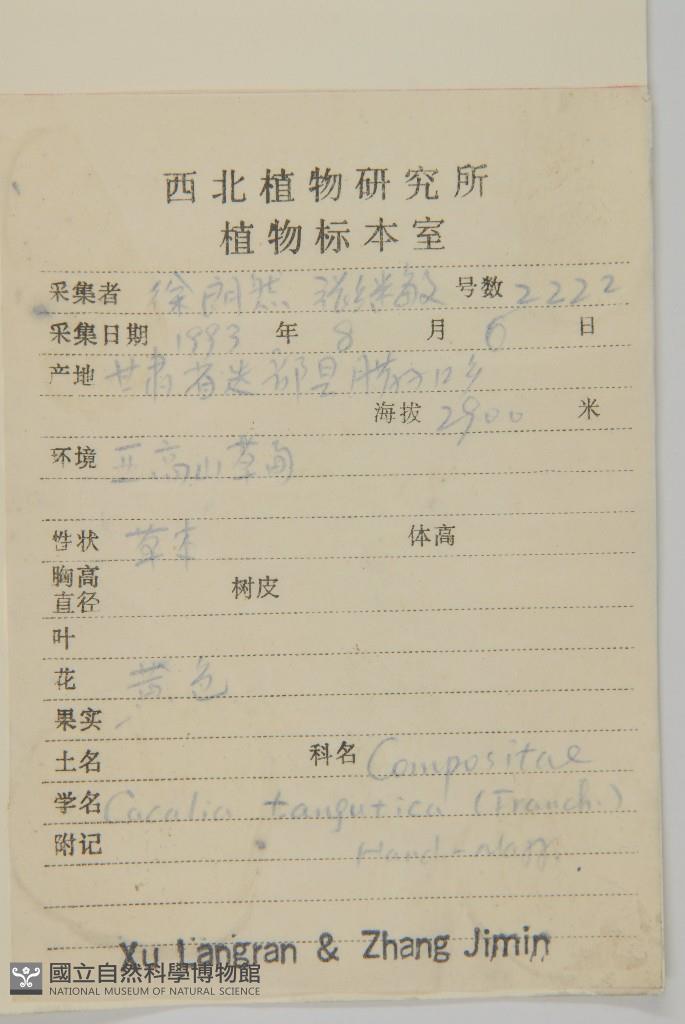 西北植物研究所
植物标本室
采集者 徐朗然 张继敏 号数 2222
采集日期 1993 年 8 月 6 日
产地 甘肃省迭部县腊子口乡
海拔 2900 米
环境 亚高山草甸
性状 草本 体高
胸高直径 树皮
叶
花 黄色
果实
土名 科名 Compositae
学名 Cacalia tangutica (Franch.)
附记 Hand-Mazz.
Xu Langran & Zhang Jimin
國立自然科學博物館
NATIONAL MUSEUM OF NATURAL SCIENCE